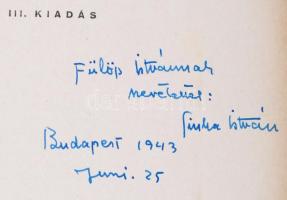 III. KIADÁS
Fülöp Istvánnak
szeretettel:
Sinka István
Budapest 1943
Juni. 25